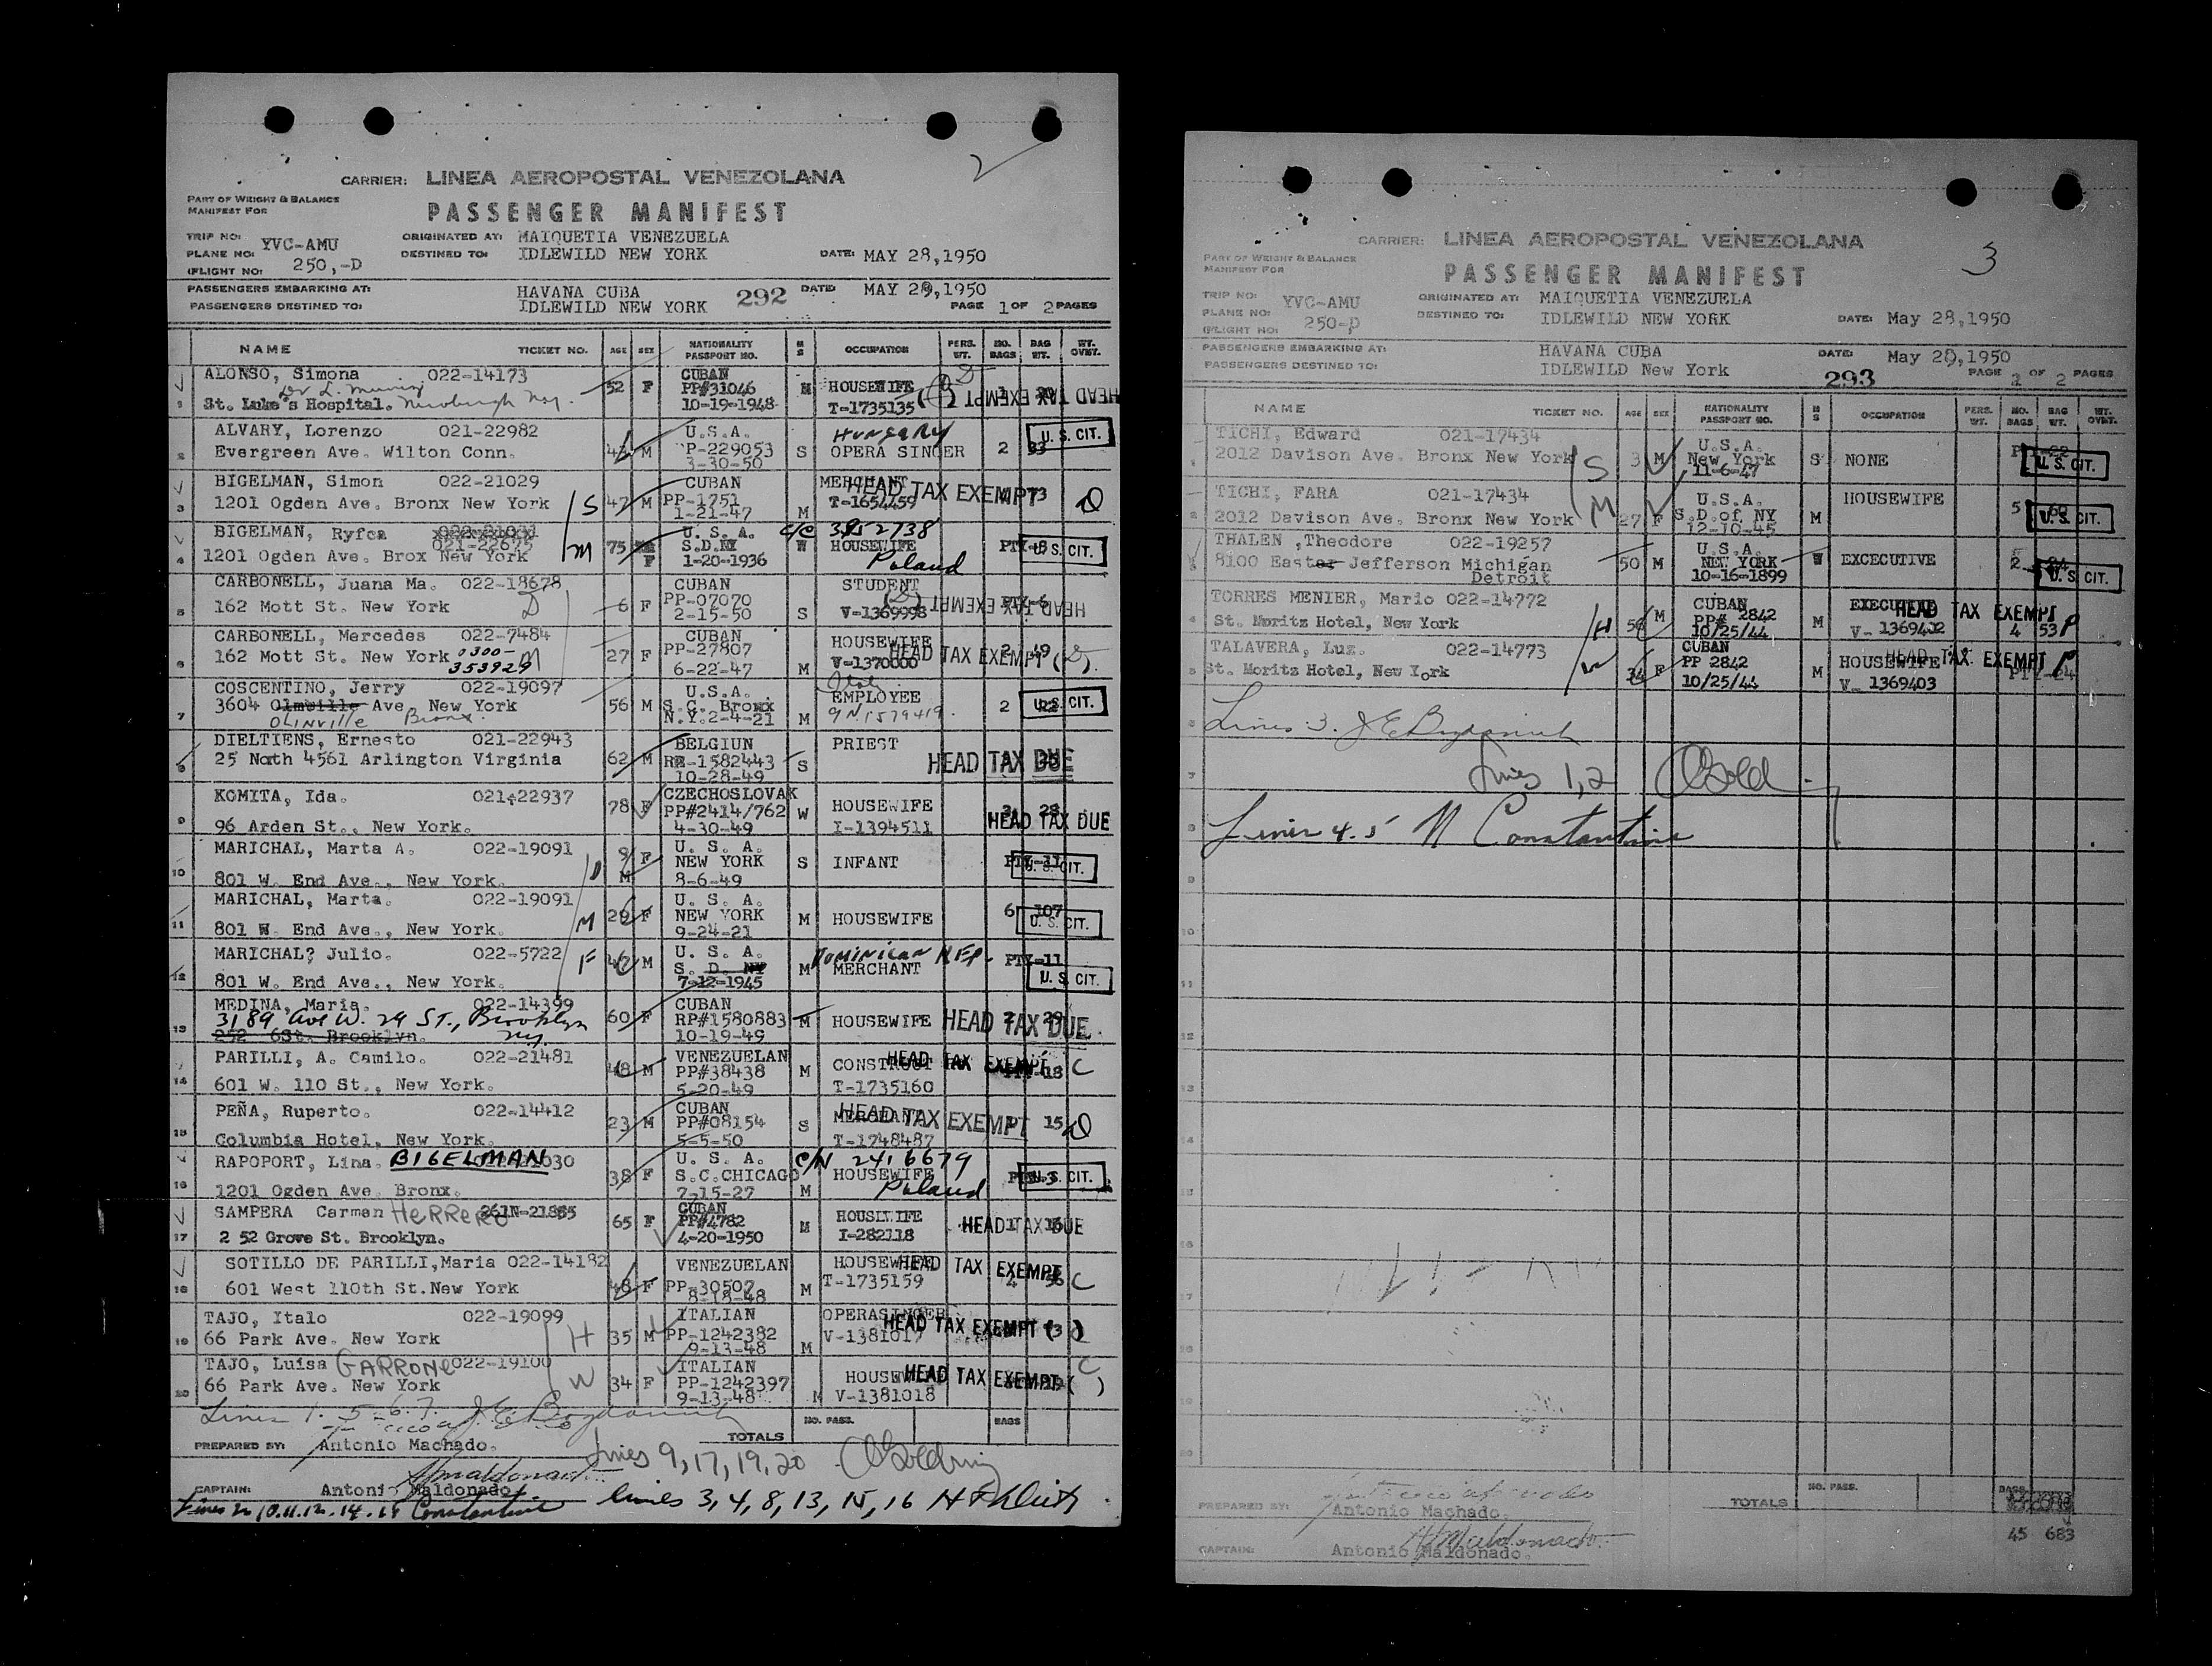 2
CARRIER: LINEA AEROPOSTAL VENEZOLANA
PART OF WEIGHT & BALANCE
MANIFEST FOR
PASSENGER MANIFEST
TRIP NO: YVC-AMU ORIGINATED AT: MAIQUETIA VENEZUELA
PLANE NO: DESTINED TO: IDLEWILD NEW YORK DATE: MAY 28,1950
(FLIGHT NO: 250,-D
PASSENGERS EMBARKING AT: HAVANA CUBA 292 DATE: MAY 29,1950
PASSENGERS DESTINED TO: IDLEWILD NEW YORK PAGE 1 OF 2 PAGES
NAME TICKET NO. AGE SEX NATIONALITY PASSPORT NO. M S OCCUPATION PERS. WT. NO. BAGS BAG WT. WT. OVMT.
1 ALONSO, Simona 022-14173 52 F CUBAN M HOUSEWIFE
PP#31046 HEAD TAX EXEMPT
St. Luke's Hospital. 10-19-1948 T-1735135
ALVARY, Lorenzo 021-22982 U.S.A. HUNGARY U.S. CIT.
2 Evergreen Ave. Wilton Conn. M PP-229053 S OPERA SINGER 2 33
3-30-50
BIGELMAN, Simon 022-21029 CUBAN MERCHANT HEAD TAX EXEMPT
3 1201 Ogden Ave. Bronx New York S 47 M PP-1751 T-1654459 73 D
1-21-47 M
BIGELMAN, Ryfca 021-22675 U. S. A.
4 1201 Ogden Ave. Brox New York M 75 F S.D.NY W HOUSEWIFE U.S. CIT.
1-20-1936 Poland
CARBONELL, Juana Ma. 022-18678 CUBAN STUDENT
5 162 Mott St. New York D 6 F PP-07070 HEAD TAX EXEMPT
2-15-50 S V-1369998
CARBONELL, Mercedes 022-7484 CUBAN HOUSEWIFE 2 49
6 162 Mott St. New York 0300- M 27 F PP-27807 HEAD TAX EXEMPT
353929 6-22-47 M V-1370000
COSCENTINO, Jerry 022-19097 U.S.A.
7 3604 Olmville Ave New York 56 M S.C. Bronx EMPLOYEE 2 U.S. CIT.
OLINVILLE Bronx. N.Y.2-4-21 M
DIELTIENS, Ernesto 021-22943 BELGIUN PRIEST
8 25 North 4561 Arlington Virginia 62 M RE-1582443 S HEAD TAX DUE
10-28-49
KOMITA, Ida. 021-22937 CZECHOSLOVAK
9 78 F PP#2414/762 W HOUSEWIFE HEAD TAX DUE
96 Arden St., New York. 4-30-49 I-1394511
MARICHAL, Marta A. 022-19091 9 U. S. A.
10 D M F NEW YORK S INFANT PTY-11 U.S. CIT.
801 W. End Ave., New York. 8-6-49
MARICHAL, Marta. 022-19091 U. S. A. 6 107
11 M F NEW YORK M HOUSEWIFE U.S. CIT.
801 W. End Ave., New York. 9-24-21
MARICHAL? Julio. 022-5722 U. S. A. DOMINICAN REP. PTY-11
12 F M S. D. NY M MERCHANT U.S. CIT.
801 W. End Ave., New York. 7-12-1945
MEDINA, Maria. 022-14399 CUBAN
13 3189 Ave W. 29 ST., Brooklyn 60 F RP#1580883 M HOUSEWIFE HEAD TAX DUE
252 6St. Brooklyn. NY. 10-19-49
PARILLI, A. Camilo. 022-21481 VENEZUELAN HEAD TAX EXEMPT C
14 M PP#38438 M CONSTRUCT
601 W. 110 St., New York. 5-20-49 T-1735160
PEÑA, Ruperto. 022-14412 CUBAN HEAD TAX EXEMPT
15 23 M PP#08154 S MERCHANT 15 D
Columbia Hotel, New York. 5-5-50 T-1748487
RAPOPORT, Lina. BIGELMAN U. S. A. C/N 2416679
16 38 F S.C.CHICAGO HOUSEWIFE U.S. CIT.
1201 Ogden Ave. Bronx. 7-15-27 M Poland
SAMPERA Carmen HERRERO CUBAN
17 65 F PP#4782 M HOUSEWIFE HEAD TAX DUE
2 52 Grove St. Brooklyn. 4-20-1950 I-282118
SOTILLO DE PARILLI,Maria 022-14182 VENEZUELAN HOUSEWIFE HEAD TAX EXEMPT
18 601 West 110th St.New York 48 F PP-30502 M T-1735159 C
8-18-48
TAJO, Italo 022-19099 ITALIAN OPERASINGER
19 66 Park Ave. New York H 35 M PP-1242382 V-1381017 HEAD TAX EXEMPT
9-13-48 M
TAJO, Luisa GARRONE 022-19100 ITALIAN HOUSEWIFE HEAD TAX EXEMPT C
20 66 Park Ave. New York W 34 F PP-1242397
9-13-48 M V-1381018
Lines 1. 5-6.7.
NO. PASS. BAGS
TOTALS
PREPARED BY: Antonio Machado.
Lines 9,17,19,20
CAPTAIN: Antonio Maldonado.
Constantine lines 3,4,8,13,15,16
3
CARRIER: LINEA AEROPOSTAL VENEZOLANA
PART OF WEIGHT & BALANCE
MANIFEST FOR
PASSENGER MANIFEST
TRIP NO: YVC-AMU ORIGINATED AT: MAIQUETIA VENEZUELA
PLANE NO: DESTINED TO: IDLEWILD NEW YORK DATE: May 28,1950
(FLIGHT NO: 250-D
PASSENGERS EMBARKING AT: HAVANA CUBA DATE: May 29,1950
PASSENGERS DESTINED TO: IDLEWILD New York 293 PAGE 2 OF 2 PAGES
NAME TICKET NO. AGE SEX NATIONALITY PASSPORT NO. M S OCCUPATION PERS. WT. NO. BAGS BAG WT. WT. OVMT.
TICHI, Edward 021-17434 U.S.A.
1 2012 Davison Ave. Bronx New York S 3 M New York S NONE U.S. CIT.
11-6-47
TICHI, FARA 021-17434 U.S.A. HOUSEWIFE 5
2 2012 Davison Ave. Bronx New York M 27 F S.D.of NY M U.S. CIT.
12-10-45
THALEN ,Theodore 022-19257 U.S.A.
3 8100 Easter Jefferson Michigan 50 M NEW YORK W EXCECUTIVE 2 U.S. CIT.
Detroit 10-16-1899
TORRES MENIER, Mario 022-14772 CUBAN EXECUTIVE HEAD TAX EXEMPT
4 St. Moritz Hotel, New York H M PP# 2842 M 4 53 P
10/25/44 V- 1369402
TALAVERA, Luz. 022-14773 CUBAN HEAD TAX EXEMPT P
5 St. Moritz Hotel, New York W 34 F PP 2842 M HOUSEWIFE PTY-24
10/25/44 V- 1369403
6 Lines 3.
7 Lines 1,2
8 Lines 4.5 N Constantine
9
10
11
12
13
14
15
16
17
18
19
20
NO. PASS. BAGS
PREPARED BY: Antonio Machado. TOTALS
45 683
CAPTAIN: Antonio Maldonado.